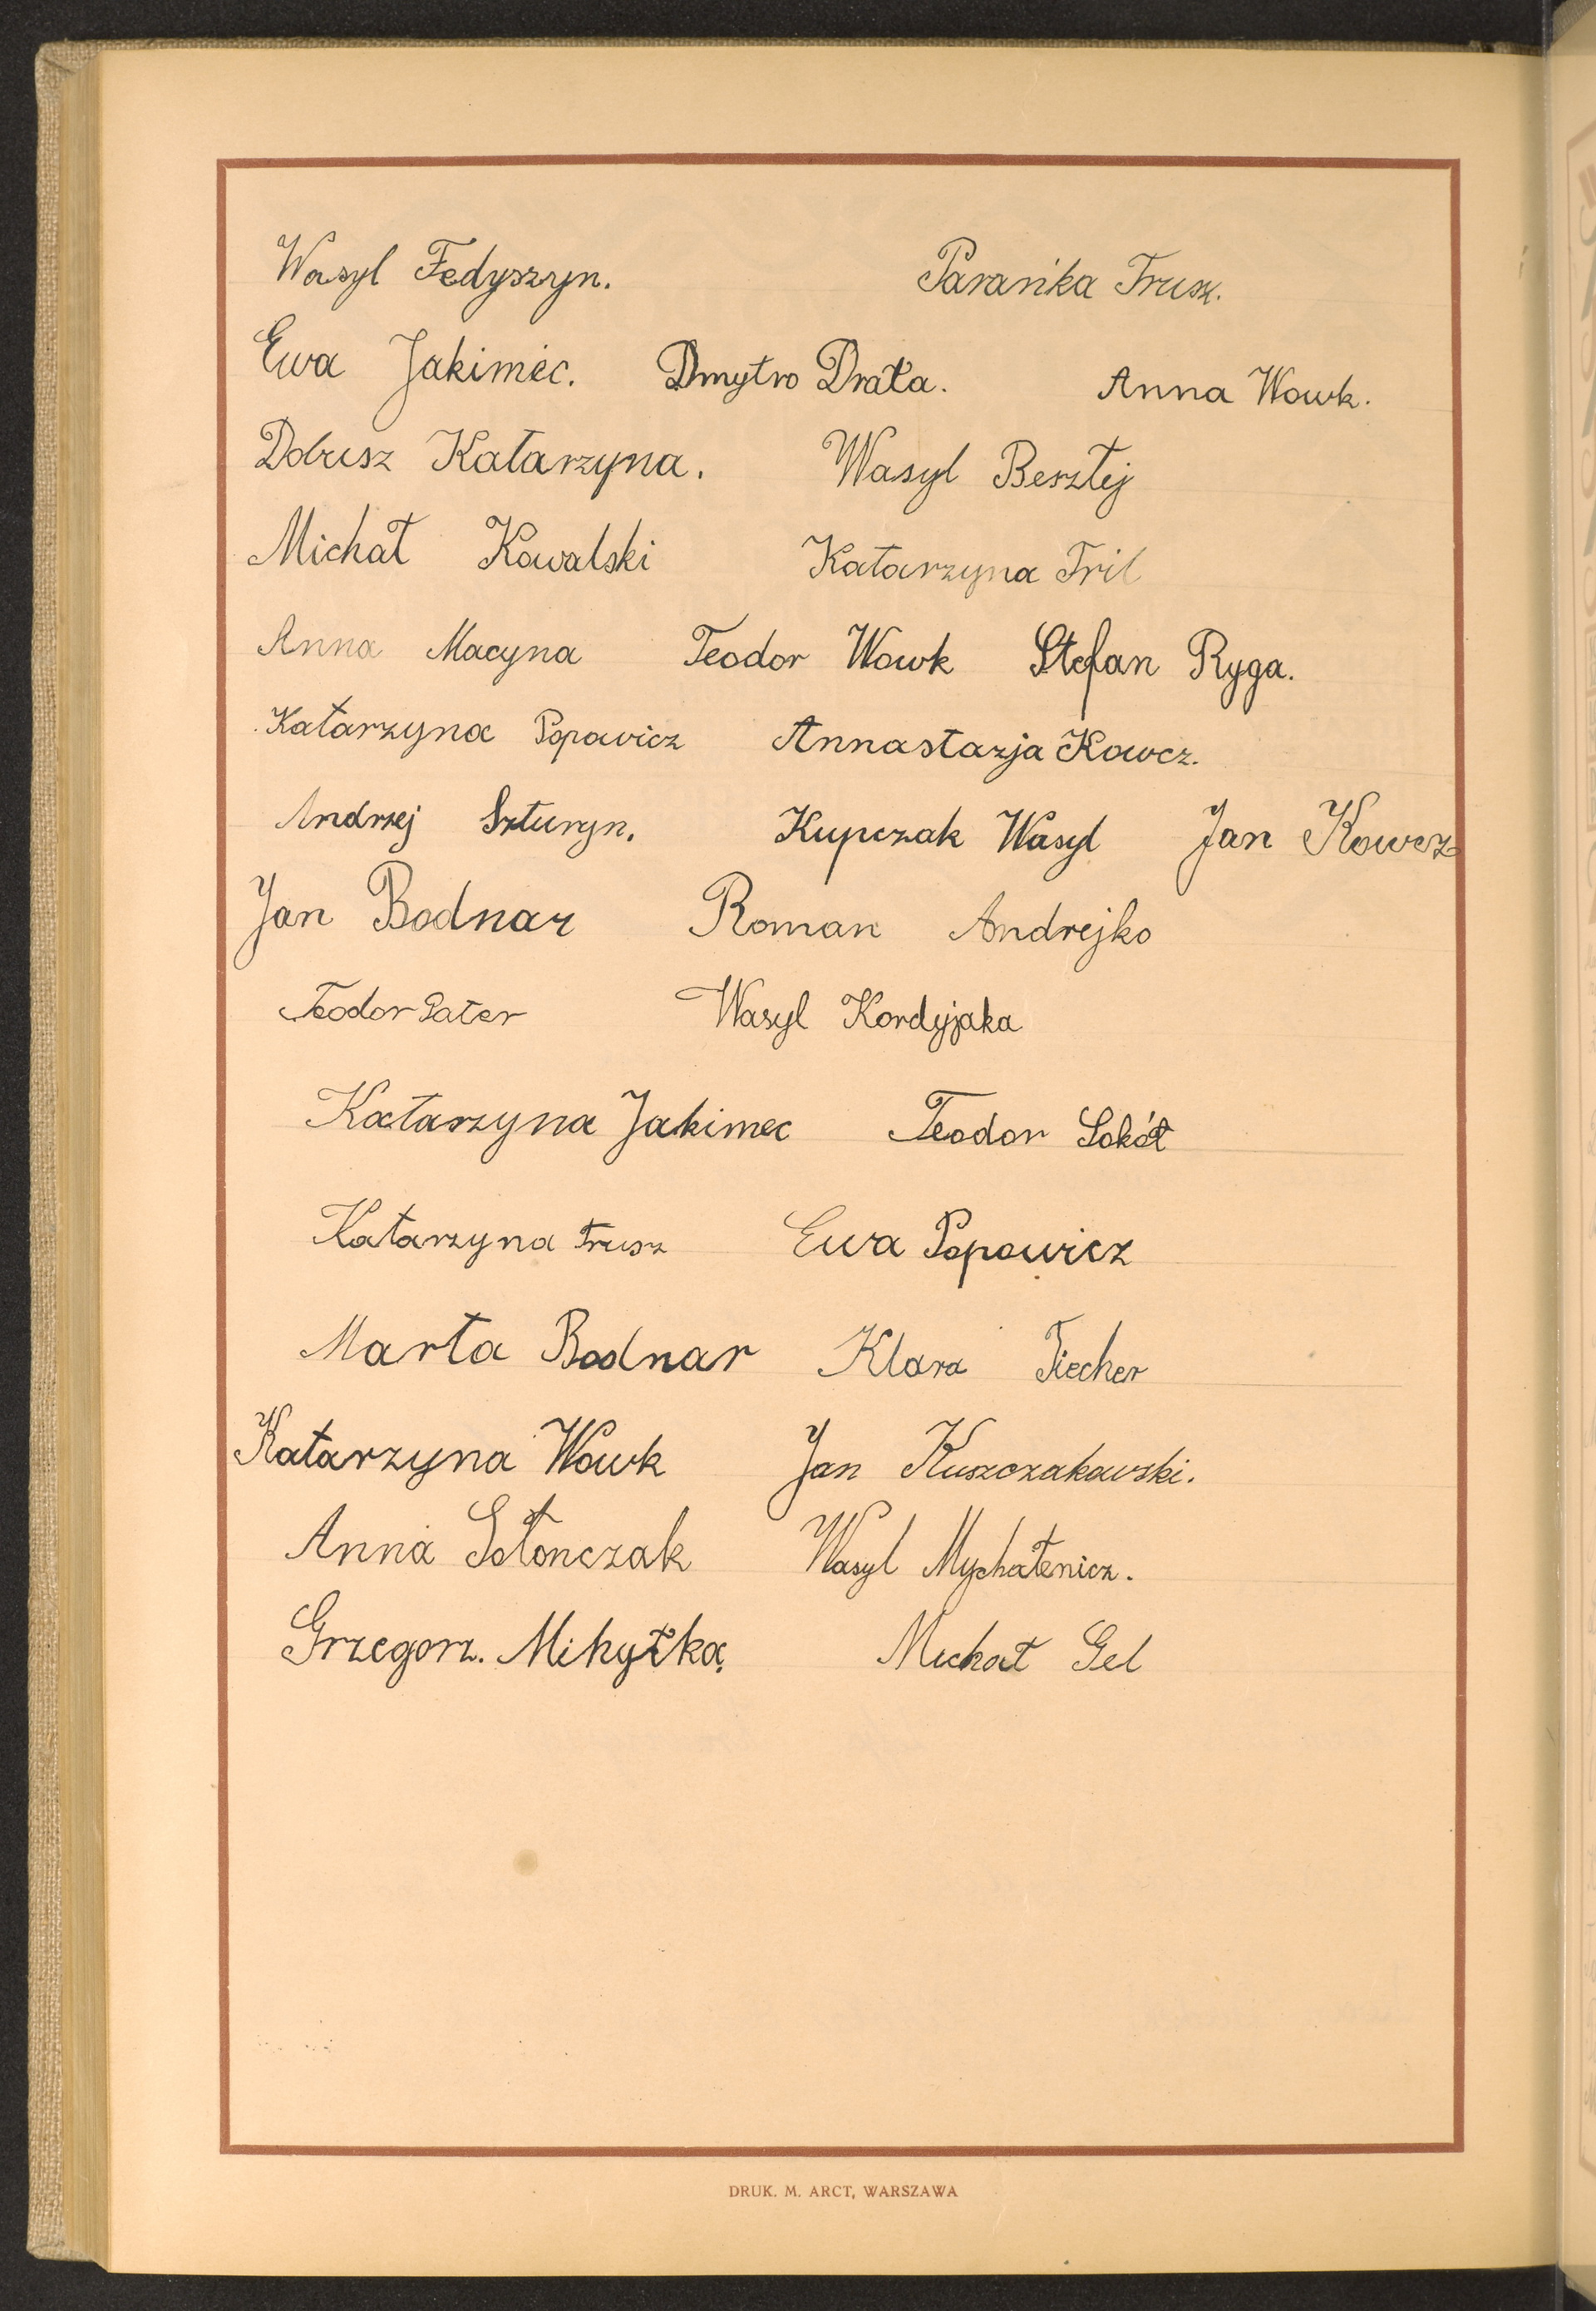 Wasyl Fedyszyn. Parańka Trusz.
Ewa Jakimec. Dmytro Drała. Anna Wowk.
Dobusz Katarzyna. Wasyl Besztej
Michał Kowalski Katarzyna Tril
Anna Macyna Teodor Wowk Stefan Ryga.
Katarzyna Popowicz Annastazja Kowcz.
Andrzej Szturyn. Kupczak Wasyl Jan Kowcz
Jan Bodnar Roman Andrejko
Teodor Pater Wasyl Kordyjaka
Katarzyna Jakimec Teodor Sokół
Katarzyna Trusz Ewa Popowicz
Marta Bodnar Klara Fiecher
Katarzyna Wowk Jan Kuszczakowski.
Anna Sołonczak Wasyl Mychałenicz.
Grzegorz. Mikyłka. Michał Gel
DRUK. M. ARCT, WARSZAWA